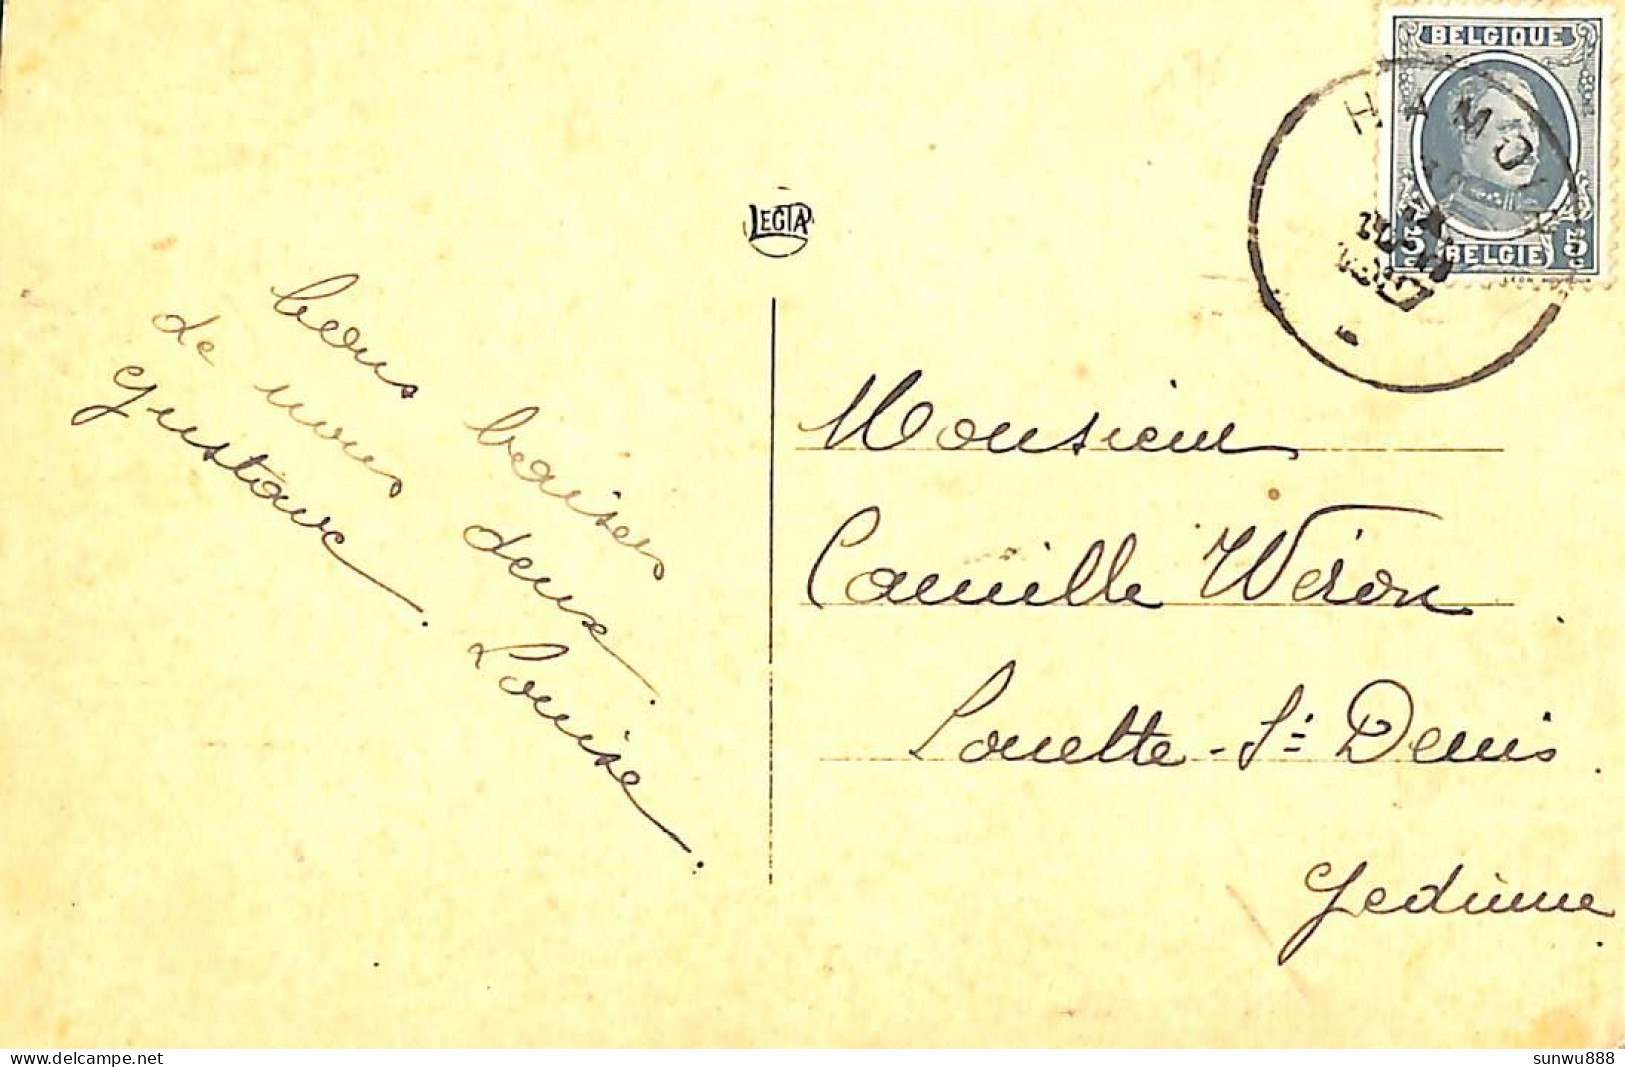 BELGIQUE
5 c
5 c
BELGIE
LEGIA
bons baisers
de nous deux.
Gustave. Louise.
Monsieur
Camille Wéron
Louette-St Denis.
Gedinne
www.delcampe.net
sunwu888